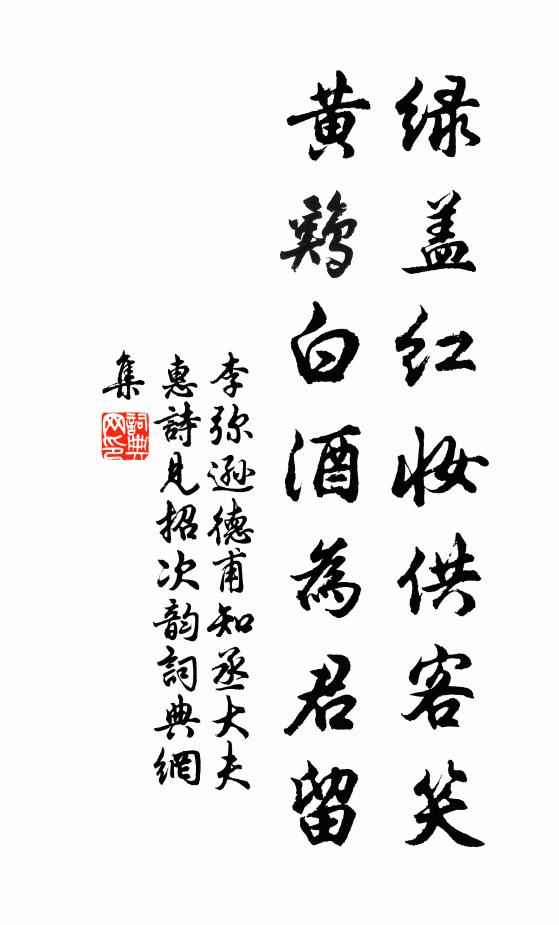 绿盖红妆供客笑
黄鸡白酒為君留
李弥遜德甫知丞大夫
惠詩見招次韵詞典網
集
詞典網印